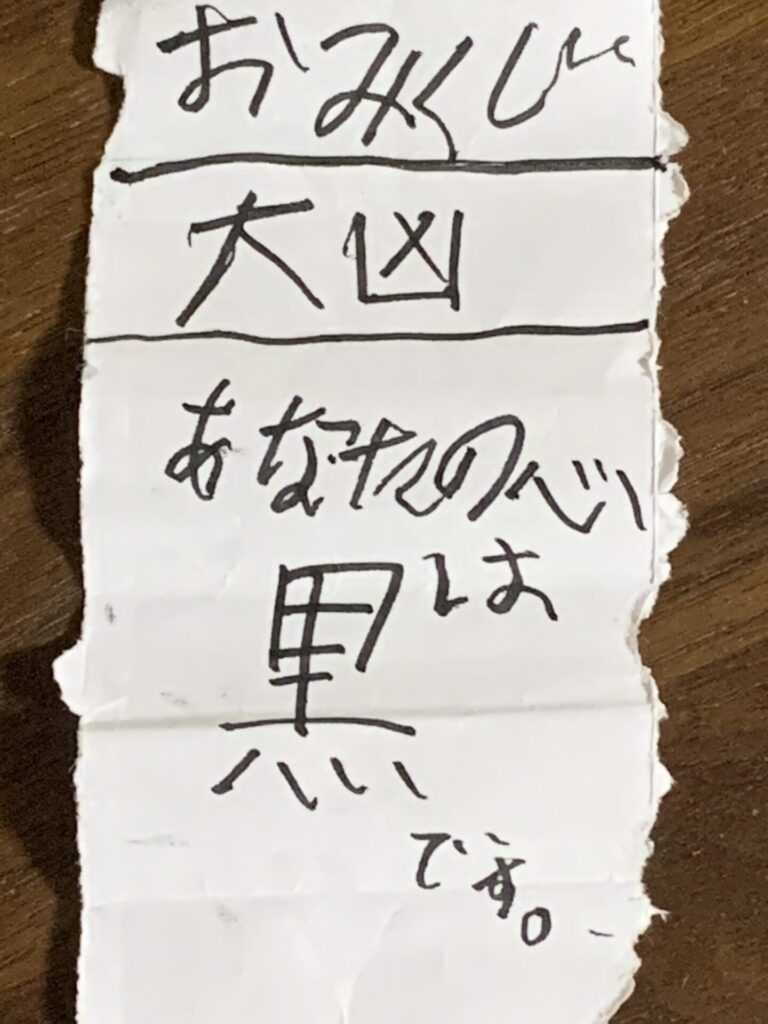 おみくじ
大凶
あなたの心
は
黒
です。